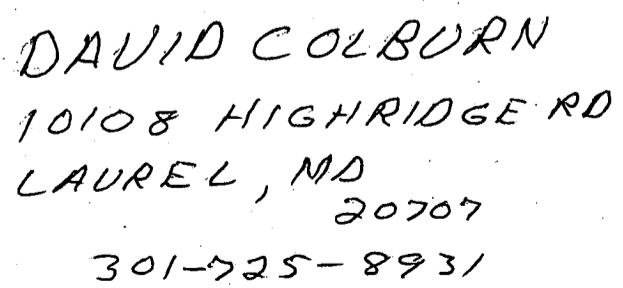 DAVID COLBURN
10108 HIGHRIDGE RD
LAUREL, MD
20707
301-725-8931